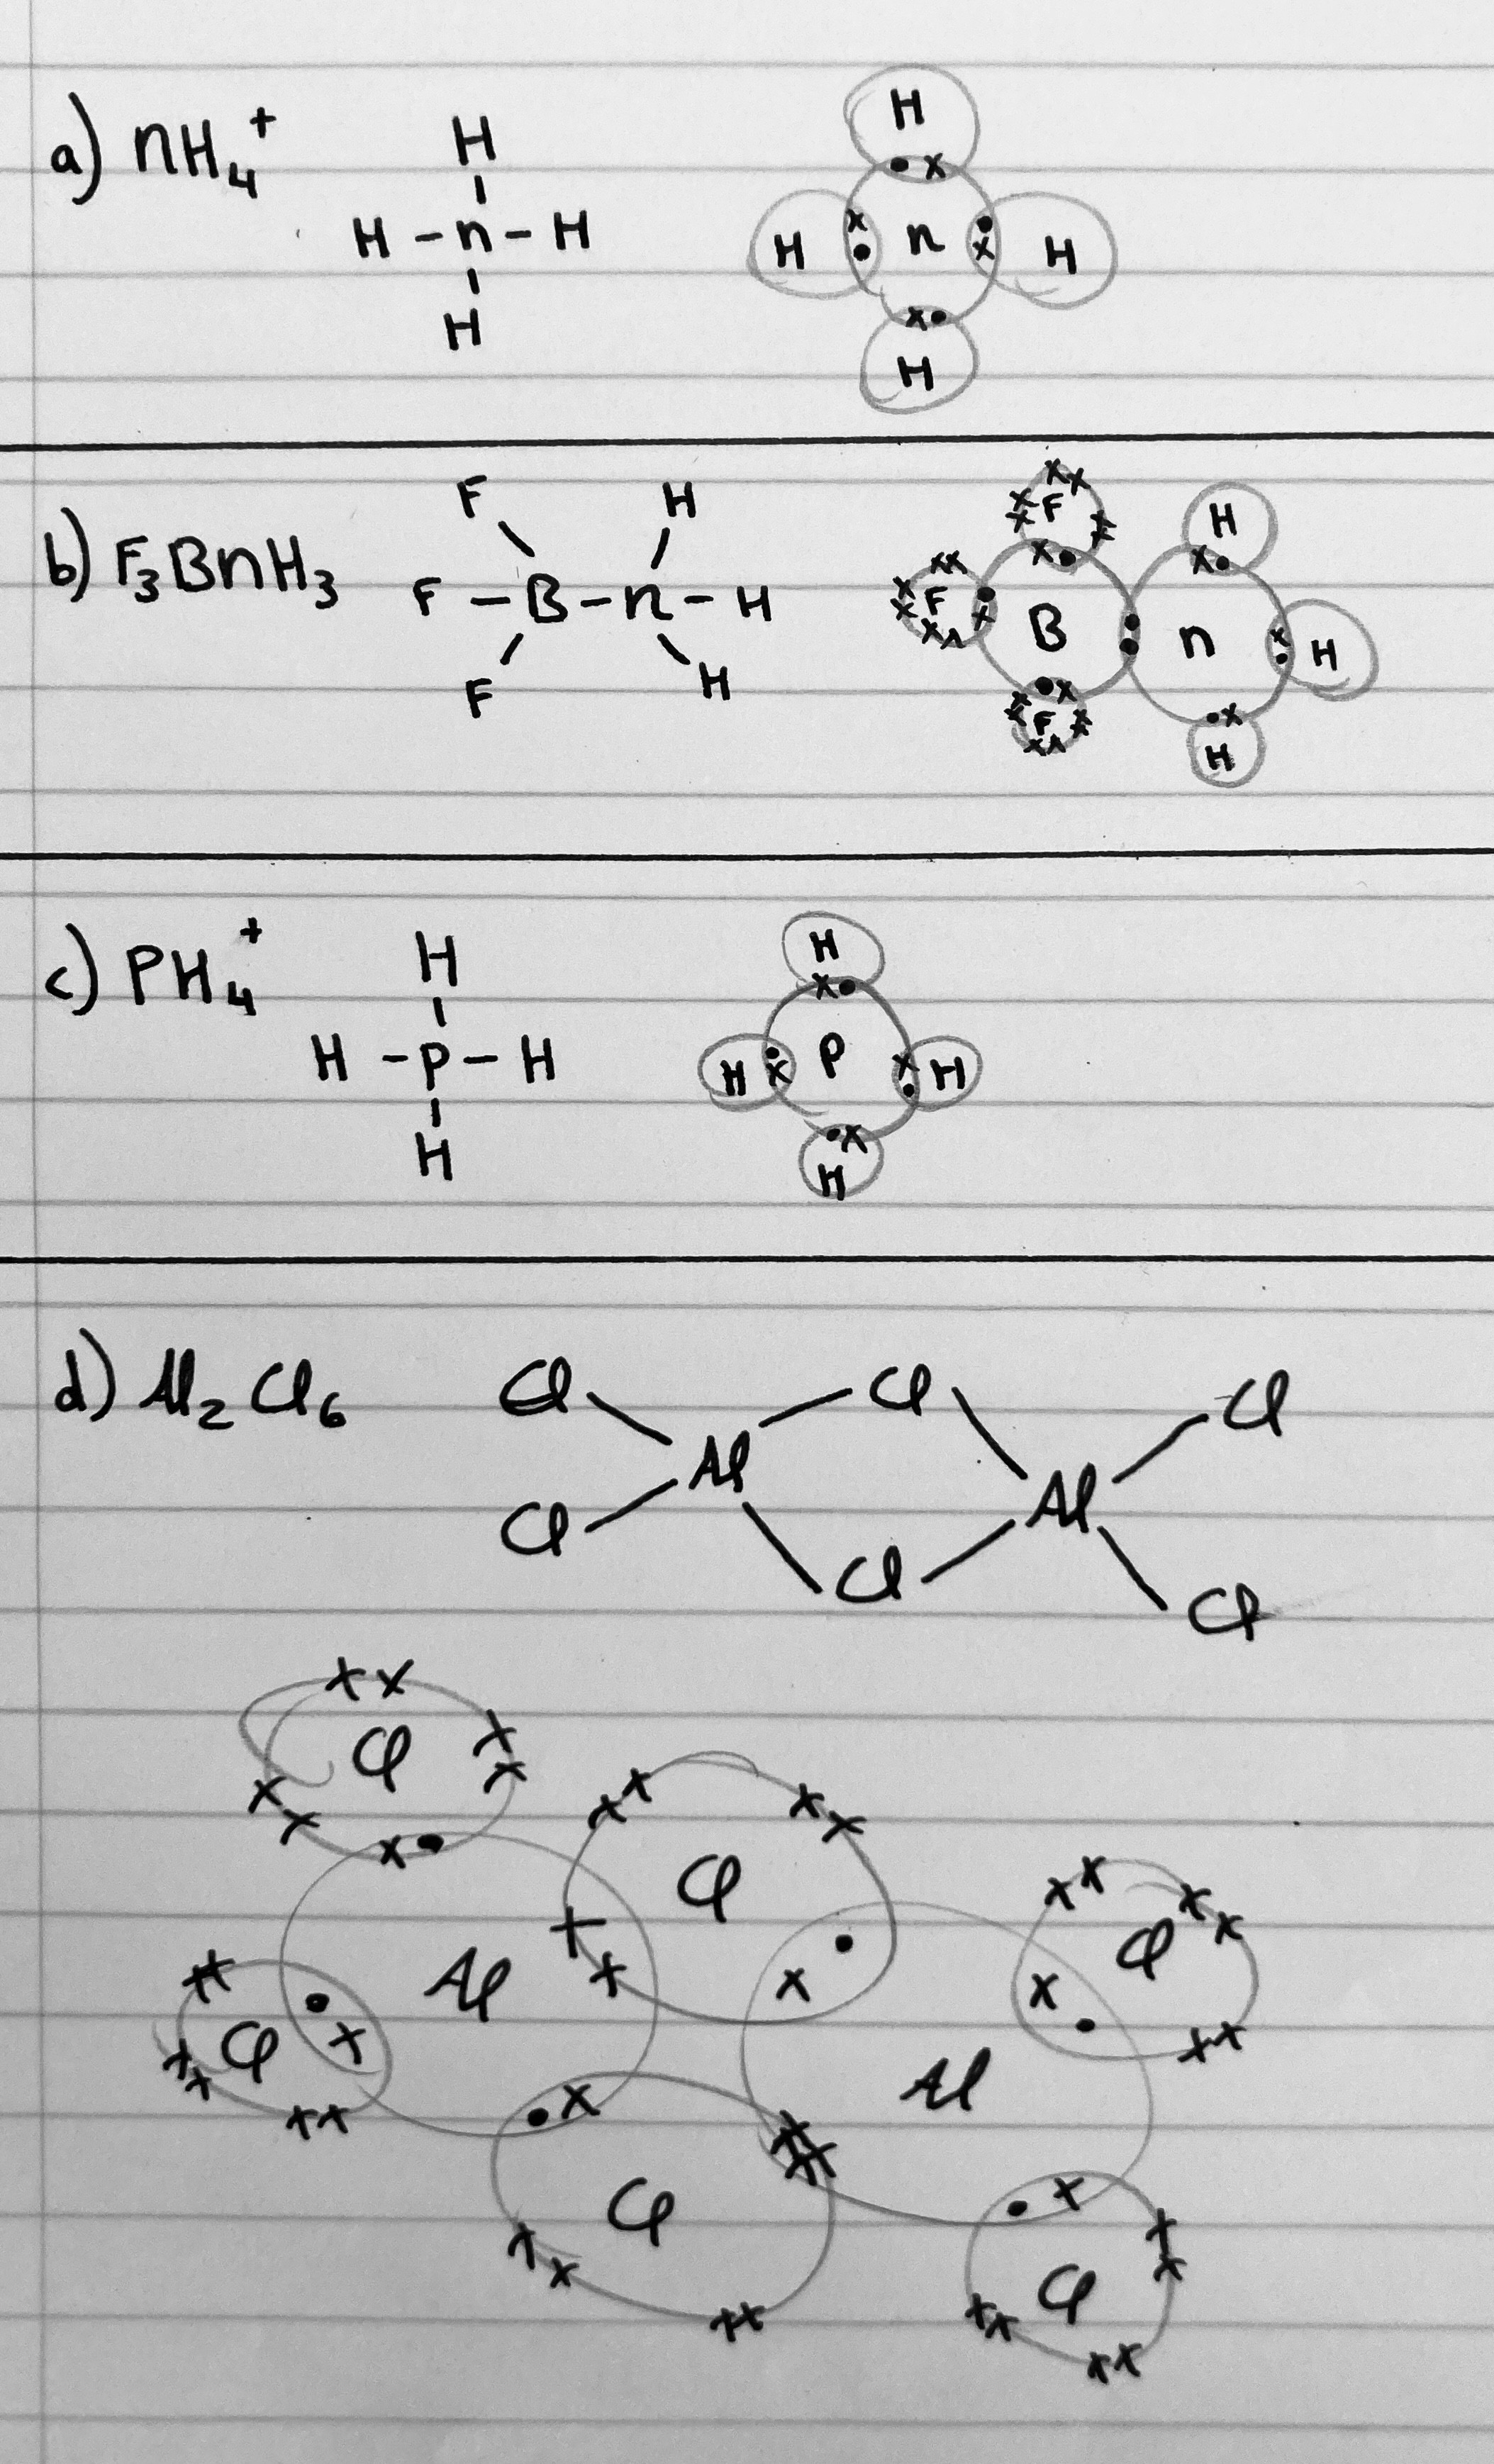 a) nH₄⁺
H
H - n - H
H
H
H n H
H
b) F₃BnH₃
F H
F - B - n - H
F H
F H
F B n H
F H
c) PH₄⁺
H
H - P - H
H
H
H P H
H
d) Al₂Cl₆
Cl Cl Cl
Al Al
Cl Cl Cl
Cl
Cl
Cl
Al
Cl
Al
Cl
Cl